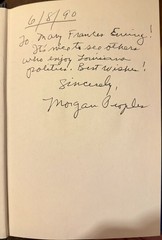 6/8/90
To Mary Frances Ewing!
It's nice to see others
who enjoy Louisiana
politics. Best Wishes!
Sincerely,
Morgan Peoples